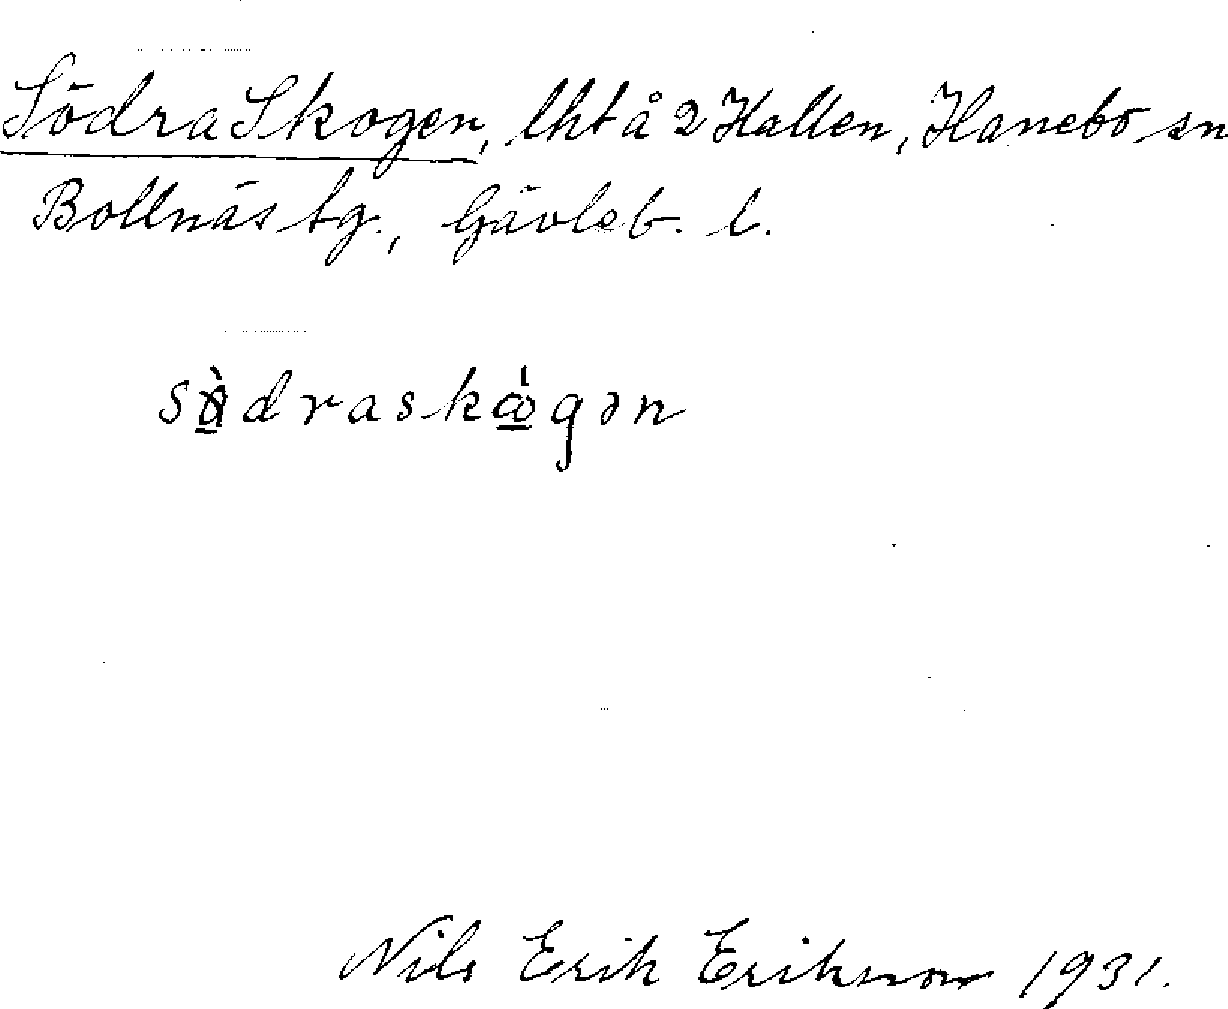 Södra Skogen, lht å 2 Hallen, Hanebo sn
Bollnäs tg., Gävleb. l.
Nils Erik Erikson 1931.